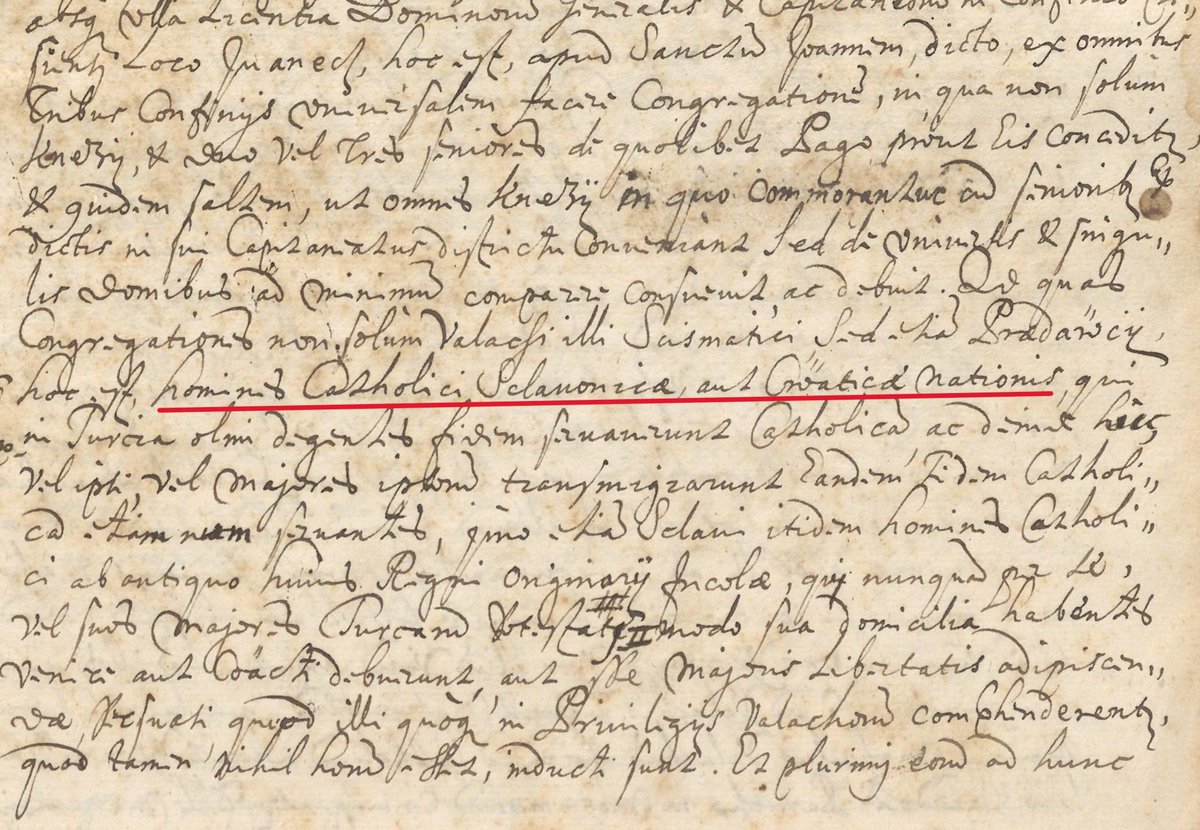 absq ulla Licentia Dominorum Generalis & Capitaneorum in Confinio
sientz Loco Juanech, hoc est, apud Sanctū Joannem, dicto, ex omnibus
Tribus Confinijs universalem facere Congregationē, in qua non solum
Knezij, & duo vel Tres seniores de quolibet Pago prout Eis conceditz,
& quidem saltem, ut omnes Knezij in quo commorantur cū seniorib
dictis in sui Capitaneatus districtu Conveniant Sed de universis & singu„
lis domibus ad minimū comparere consuevit, ac debuit. Ad quas
Congregationes non solum Valachi illi Scismatici Sed etiā Prædavecij,
hoc est, homines Catholici Sclavonicæ, aut Croaticæ Nationis, qui
in Turcia olim degentes fidem servaverunt Catholicā ac demū huc,
vel ipsi, vel Majores ipsorū transmigrarunt Eandem Fidem Catholi„
cā etiam num servantes, imo etiā Sclavi itidem homines Catholi„
ci ab antiquo huius Regni originarij Incolæ, qui nunquā per se,
vel suos Majores Turcarū Potestate modo sua domicilia habentes
venire aut Coacti debuerunt, aut spe Majoris Libertatis adipiscen„
dæ, persuasi quod illi quoq in Privilegijs Valachorū comphenderentz,
quod tamen nihil horū esset, inducti sunt. Et plurimi eorū ad hunc